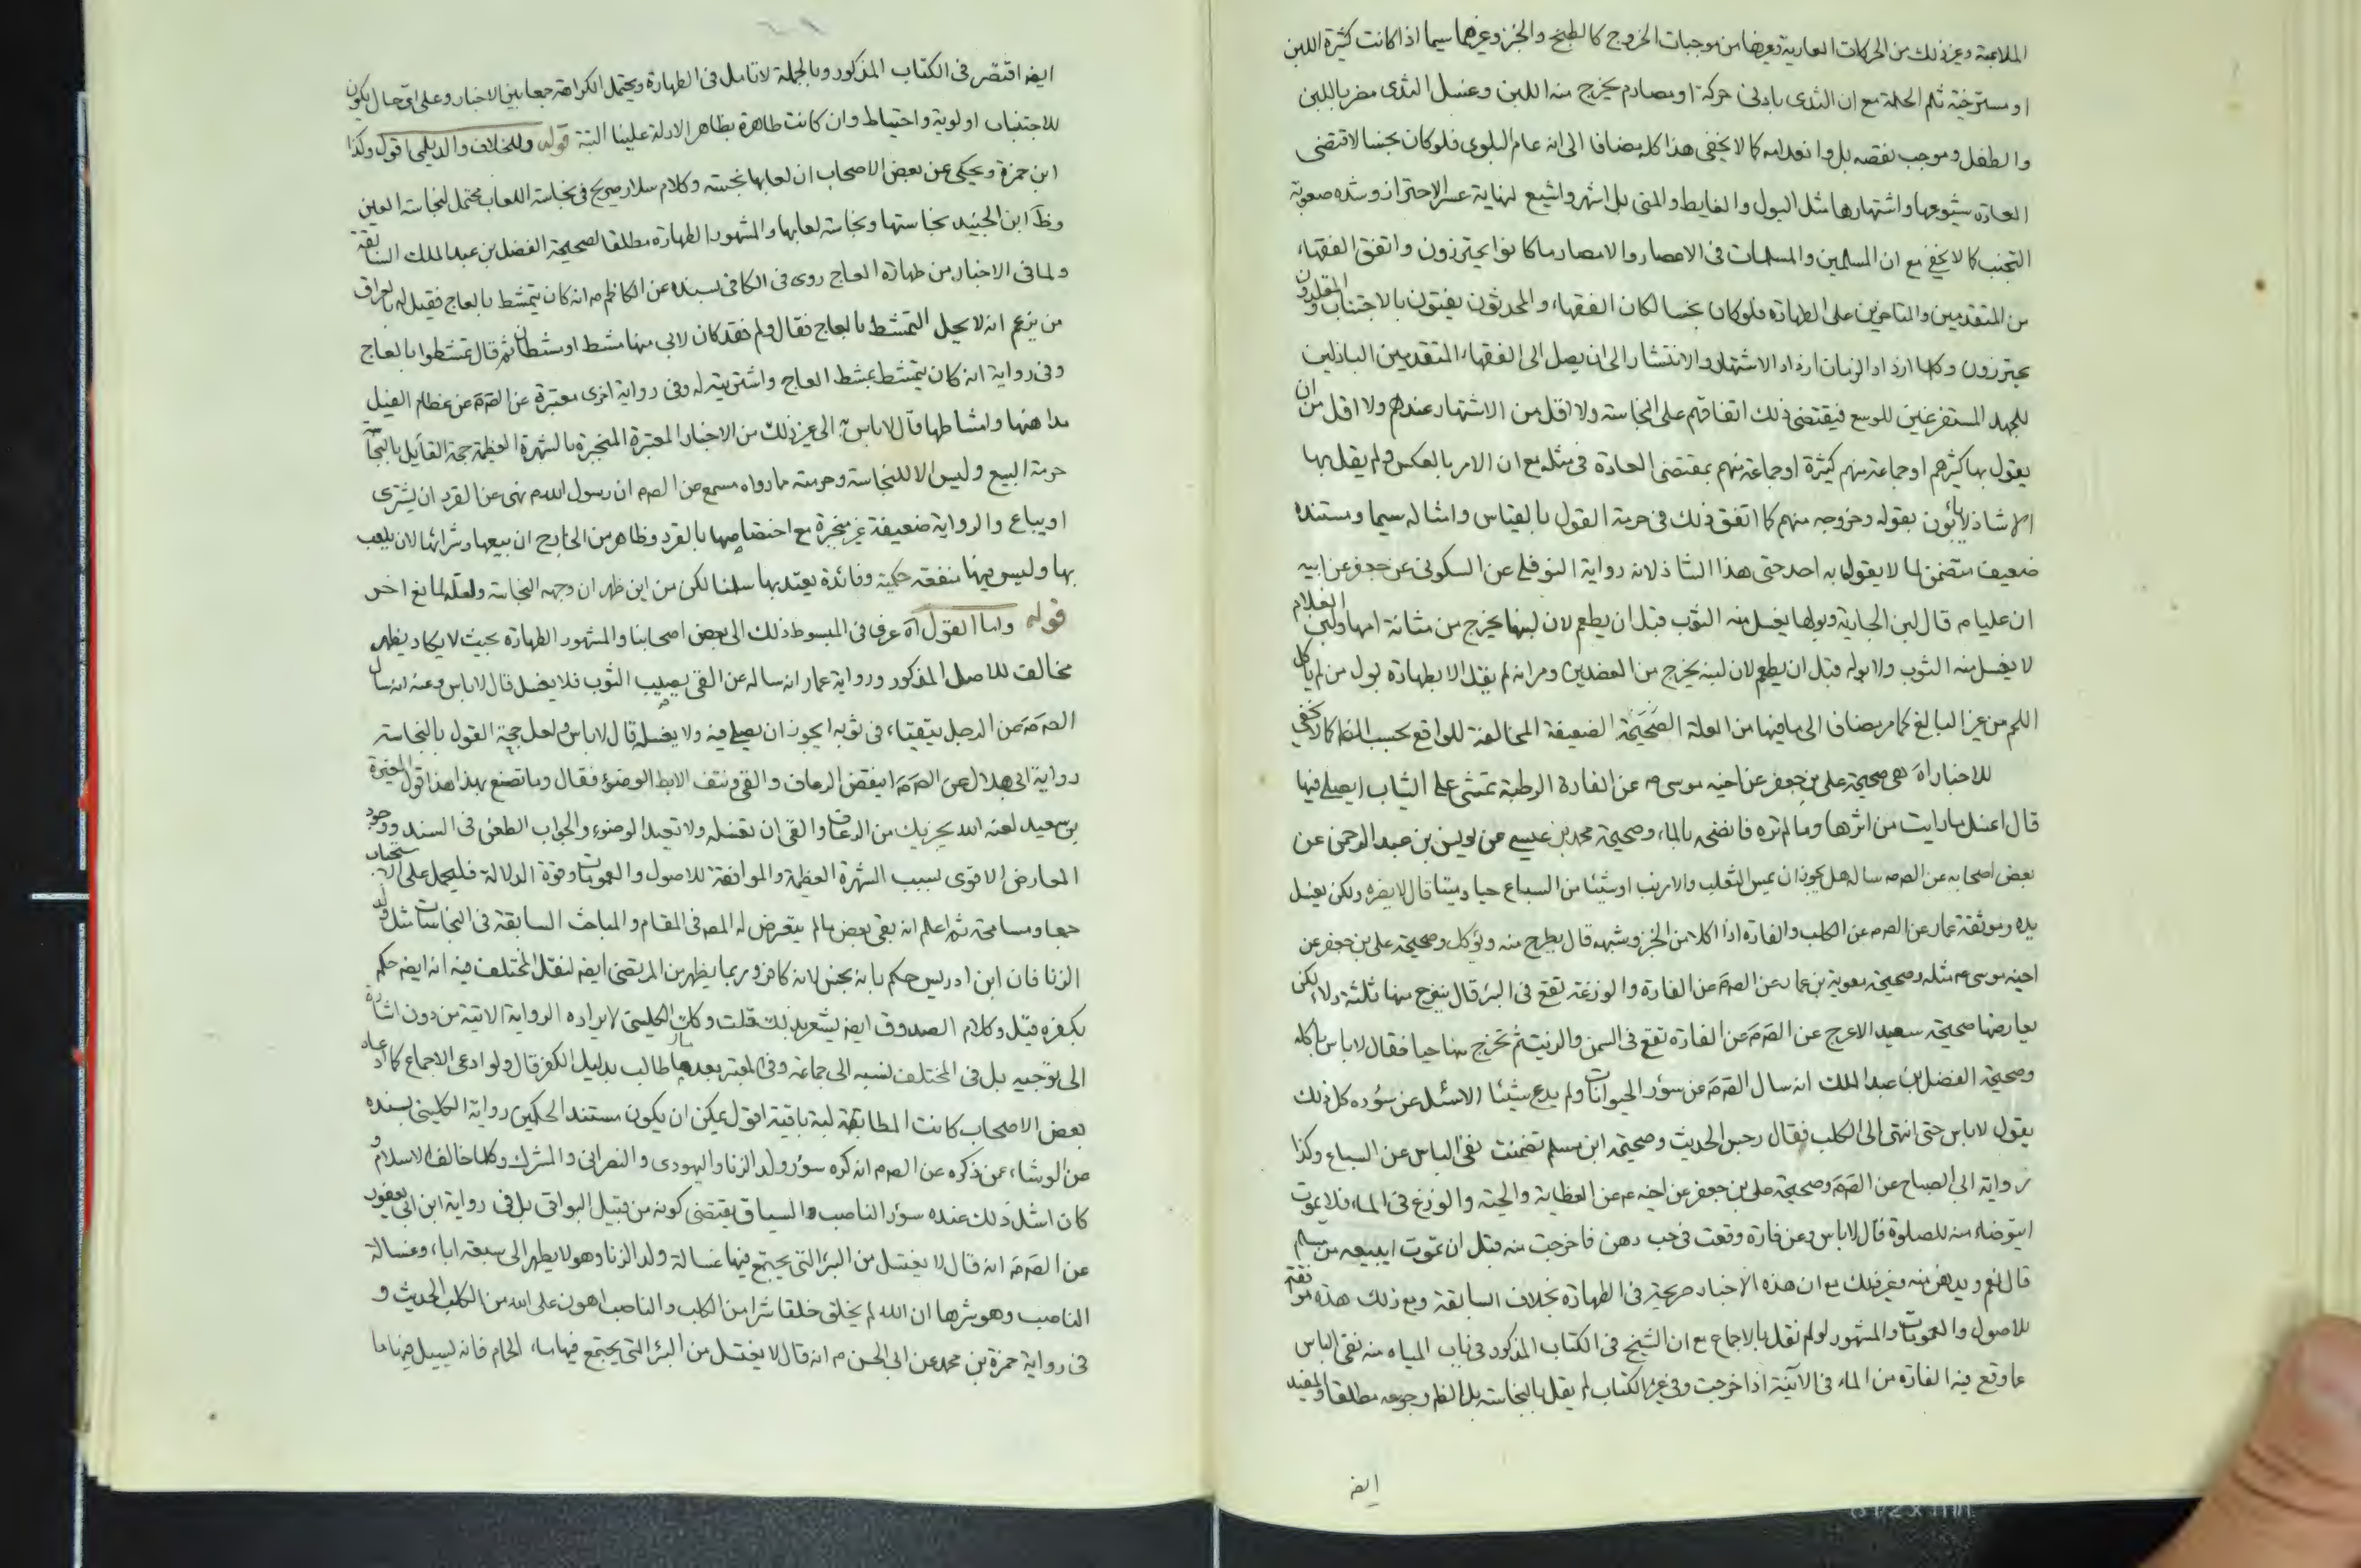 الملاعبة وغير ذلك من الحركات العادية وغيرها من موجبات الخروج كالطبخ والخبز وغيرهما سيما اذا كانت كثيرة اللبن
او مسترخية ثلم الحلمة مع ان الثدى بادنى حركة او مصادم يخرج منه اللبن وغسل الثدى مضر باللبن
والطفل وموجب نقصه بل وانعدامه كما لا يخفى هذا كله مضافا الى انه عام البلوى فلو كان نجسا لاقتضى
العادة شيوعها واشتهارها مثل البول والغايط والمنى بل اشهر واشيع لنهاية عسر الاحتراز وشدة صعوبة
التجنب كما لا يخفى مع ان المسلمين والمسلمات فى الاعصار والامصار ما كانوا يحترزون واتفق الفقهاء
من المتقدمين والمتاخرين على الطهارة فلو كان نجسا لكان الفقهاء والمحدثون يفتون بالاجتناب والمقلدون
يحترزون وكلما ازداد الزمان ازداد الاشتهار والانتشار الى ان يصل الى الفقهاء المتقدمين الباذلين
للجهد المستفرغين للوسع فيقتضى ذلك اتفاقهم على النجاسة ولا اقل من الاشتهار عندهم ولا اقل من ان
يقول بها كثيرهم او جماعة منهم كثيرة او جماعة منهم بمقتضى العادة فى مثله مع ان الامر بالعكس ولم يقل بها
الا شاذ لا يأبون بقوله وخروجه منهم كما اتفق ذلك فى حرمة القول بالقياس وامثاله سيما ومستنده
ضعيف متضمن لما لا يقول به احد حتى هذا الشاذ لانه رواية النوفلى عن السكونى عن جعفر عن ابيه
ان عليا م قال لبن الجارية وبولها يغسل منه الثوب قبل ان يطعم لان لبنها يخرج من مثانة امها ولبن الغلام
لا يغسل منه الثوب ولا بوله قبل ان يطعم لان لبنه يخرج من العضدين ومر انه لم يقل الا بطهارة بول من لم ياكل
اللحم من غير البالغ كما مر مضافا الى ما فيها من العلة الصحيحة الضعيفة المخالفة للواقع بحسب الظ كما لا يخفى
للاخبار اه هى صحيحة على بن جعفر عن اخيه موسى م عن الفارة الرطبة تمشى على الثياب ايصلى فيها
قال اغسل ما رايت من اثرها وما لم تره فانضحه بالماء وصحيحة محمد بن عيسى عن يونس بن عبد الرحمن عن
بعض اصحابه عن الصم ساله هل يجوز ان يمس الثعلب والارنب او شيئا من السباع حيا وميتا قال لا يضره ولكن يغسل
يده وموثقة عمار عن الصم عن الكلب والفارة اذا اكلا من الخبز وشبهه قال يطرح منه ويؤكل وصحيحة على بن جعفر عن
اخيه موسى م مثله وصحيحة معوية بن عمار عن الصم عن الفارة والوزغة تقع فى البئر قال ينزح منها ثلثة دلاء لكن
يعارضها صحيحة سعيد الاعرج عن الصم عن الفارة تقع فى السمن والزيت ثم تخرج منها حيا فقال لا باس باكله
وصحيحة الفضل بن عبد الملك انه سال الصم عن سؤر الحيوانات ولم يدع شيئا الا سئل عن سؤره كل ذلك
يقول لا باس حتى انتهى الى الكلب فقال رجس الحديث وصحيحة ابن مسلم تضمنت نفى الباس عن السباع وكذا
رواية ابى الصباح عن الصم وصحيحة على بن جعفر عن اخيه م عن العظاية والحية والوزغ فى الماء فلا يموت
ايتوضاء منه للصلوة قال لا باس وعن فارة وقعت فى حب دهن فاخرجت منه قبل ان تموت ايبيعه من مسلم
قال نعم ويدهن منه وغير ذلك مع ان هذه الاخبار صريحة فى الطهارة بخلاف السابقة ومع ذلك هذه موافقة
للاصول والعمومات والمشهور لو لم نقل بالاجماع مع ان الشيخ فى الكتاب المذكور فى باب المياه منه نفى الباس
عما وقع فيه الفارة من الماء فى الآنية اذا خرجت وفى غير الكتاب لم يقل بالنجاسة بل الظ رجوعه مطلقا والمفيد
ايضا
ايضا اقتصر فى الكتاب المذكور وبالجملة لا تامل فى الطهارة ويحتمل الكراهة جمعا بين الاخبار وعلى اى حال يكون
للاجتناب اولوية واحتياط وان كانت طاهرة بظاهر الادلة علينا البتة قوله وللخلاف والديلمى اقول وكذا
ابن حمزة ويحكى عن بعض الاصحاب ان لعابها نجسة وكلام سلار صريح فى نجاسة اللعاب محتمل لنجاسة العين
وظ ابن الجنيد نجاستها ونجاسة لعابها والمشهور الطهارة مطلقا لصحيحة الفضل بن عبد الملك السابقة
ولما فى الاخبار من طهارة العاج روى فى الكافى بسنده عن الكاظم م انه كان يتمشط بالعاج فقيل له بالعراق
من يزعم انه لا يحل التمشط بالعاج فقال ولم فقد كان لابى منها مشط او مشطان ثم قال تمشطوا بالعاج
وفى رواية انه كان يتمشط بمشط العاج واشتريته له وفى رواية اخرى معتبرة عن الصم عن عظام الفيل
مداهنها وامشاطها قال لا باس به الى غير ذلك من الاخبار المعتبرة المنجبرة بالشهرة العظيمة حجة القايل بالنجاسة
حرمة البيع وليس الا للنجاسة وحرمته لما رواه مسمع عن الصم ان رسول الله م نهى عن القرد ان يشترى
او يباع والرواية ضعيفة غير منجبرة مع اختصاصها بالقرد وظاهر من الخارج ان بيعها وشرائها لان يلعب
بها وليس فيها منفعة حكمية وفائدة يعتد بها سلمنا لكن من اين ظهر ان وجهه النجاسة ولعله لمانع اخر
قوله واما القول اه عرف فى المبسوط ذلك الى بعض اصحابنا والمشهور الطهارة بحيث لا يكاد يظهر
مخالف للاصل المذكور ورواية عمار انه ساله عن القى يصيب الثوب فلا يغسل قال لا باس وعنه انه سال
الصم عن الرجل يتقياء فى ثوبه ايجوز ان يصلى فيه ولا يغسله قال لا باس ولعل حجة القول بالنجاسة
رواية ابى هلال عن الصم اينقض الرعاف والقى ونتف الابط الوضوء فقال وما تصنع بهذا هذا قول المغيرة
بن سعيد لعنه الله يجزيك من الرعاف والقى ان تغسله ولا تعيد الوضوء والجواب الطعن فى السند ووجود
المعارض الاقوى بسبب الشهرة العظيمة والموافقة للاصول والعمومات وقوة الدلالة فليحمل على الاستحباب
جمعا ومسامحة ثم اعلم انه بقى بعض ما لم يتعرض له المص فى المقام والمباحث السابقة فى النجاسات مثل ولد
الزنا فان ابن ادريس حكم بانه نجس لانه كافر وربما يظهر من المرتضى ايضا لنقل المختلف فيه انه ايضا حكم
بكفره قيل وكلام الصدوق ايضا يشعر بذلك قلت وكان الكلينى لايراده الرواية الاتية من دون اشارة
الى توجيه بل فى المختلف نسبه الى جماعة وفى المعتبر بعد ما طالب بدليل الكفر قال ولو ادعى الاجماع كما ادعاه
بعض الاصحاب كانت المطالبة باقية اقول يمكن ان يكون مستند الحكمين رواية الكلينى بسنده
عن الوشاء عمن ذكره عن الصم انه كره سؤر ولد الزنا واليهودى والنصرانى والمشرك وكلما خالف الاسلام و
كان اشد ذلك عنده سؤر الناصب والسياق يقتضى كونه من قبيل البواقى بل فى رواية ابن ابى يعفور
عن الصم انه قال لا يغتسل من البئر التى يجتمع فيها غسالة ولد الزنا وهو لا يطهر الى سبعة اباء وغسالة
الناصب وهو شرها ان الله لم يخلق خلقا شرا من الكلب والناصب اهون على الله من الكلب الحديث و
فى رواية حمزة بن محمد عن ابى الحسن م انه قال لا يغتسل من البئر التى يجتمع فيها ماء الحمام فانه يسيل فيها ما